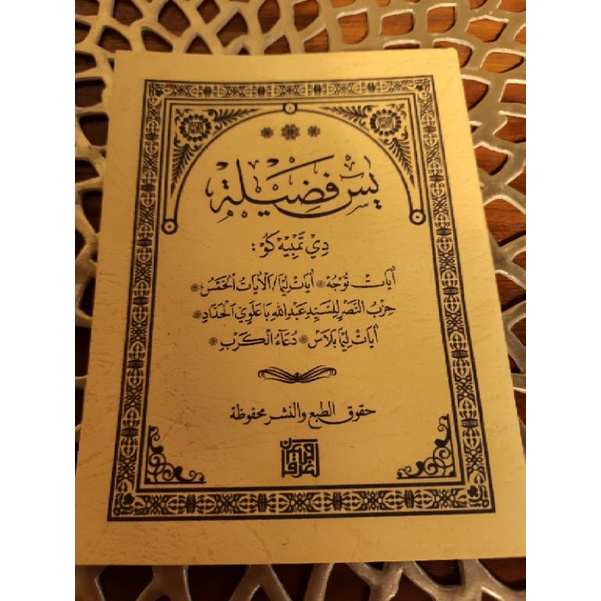 يٰسۤ فَضِيْلَة
دِي تَمْبِيْه كَوْ :
اٰيَاتْ تُوْجُهْ * اٰيَاتْ لِيْمَا/اَلْاٰيَاتُ الْخَمْسُ *
حِزْبُ النَّصْرِ لِلسَّيِّدِ عَبْدِ اللهِ بَاعَلَوِي الْحَدَّادِ *
اٰيَاتْ لِيْمَا بَلَاسْ * دُعَاءُ الْكَرْبِ *
حقوق الطبع والنشر محفوظة